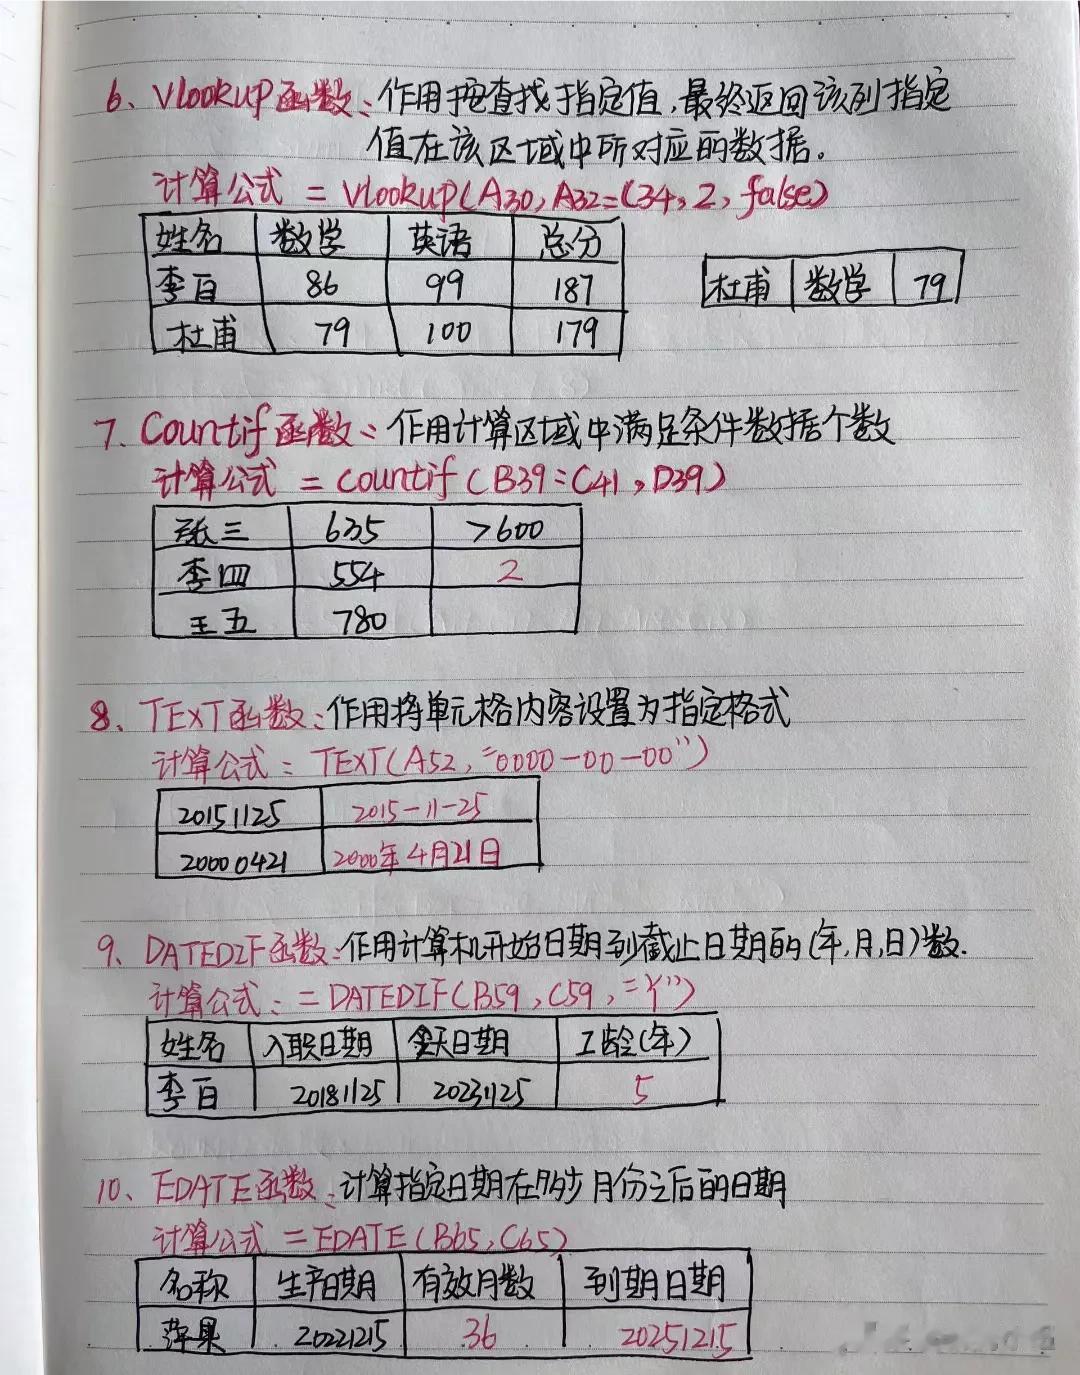 6、Vlookup函数：作用按查找指定值，最终返回该列指定
值在该区域中所对应的数据。
计算公式 = Vlookup(A30, A32:C34, 2, false)
姓名 数学 英语 总分
李百 86 99 187
杜甫 79 100 179
杜甫 数学 79
7、Countif函数：作用计算区域中满足条件数据个数
计算公式 = countif (B39:C41, D39)
张三 635 >600
李四 554 2
王五 780
8、TEXT函数：作用将单元格内容设置为指定格式
计算公式：TEXT(A52, "0000-00-00")
20151125 2015-11-25
20000421 2000年4月21日
9、DATEDIF函数：作用计算机开始日期到截止日期的(年,月,日)数.
计算公式：=DATEDIF(B59, C59, "Y")
姓名 入职日期 今天日期 工龄(年)
李百 20181125 20231125 5
10、EDATE函数：计算指定日期在多少月份之后的日期
计算公式 = EDATE(B65, C65)
名称 生产日期 有效月数 到期日期
苹果 20221215 36 20251215